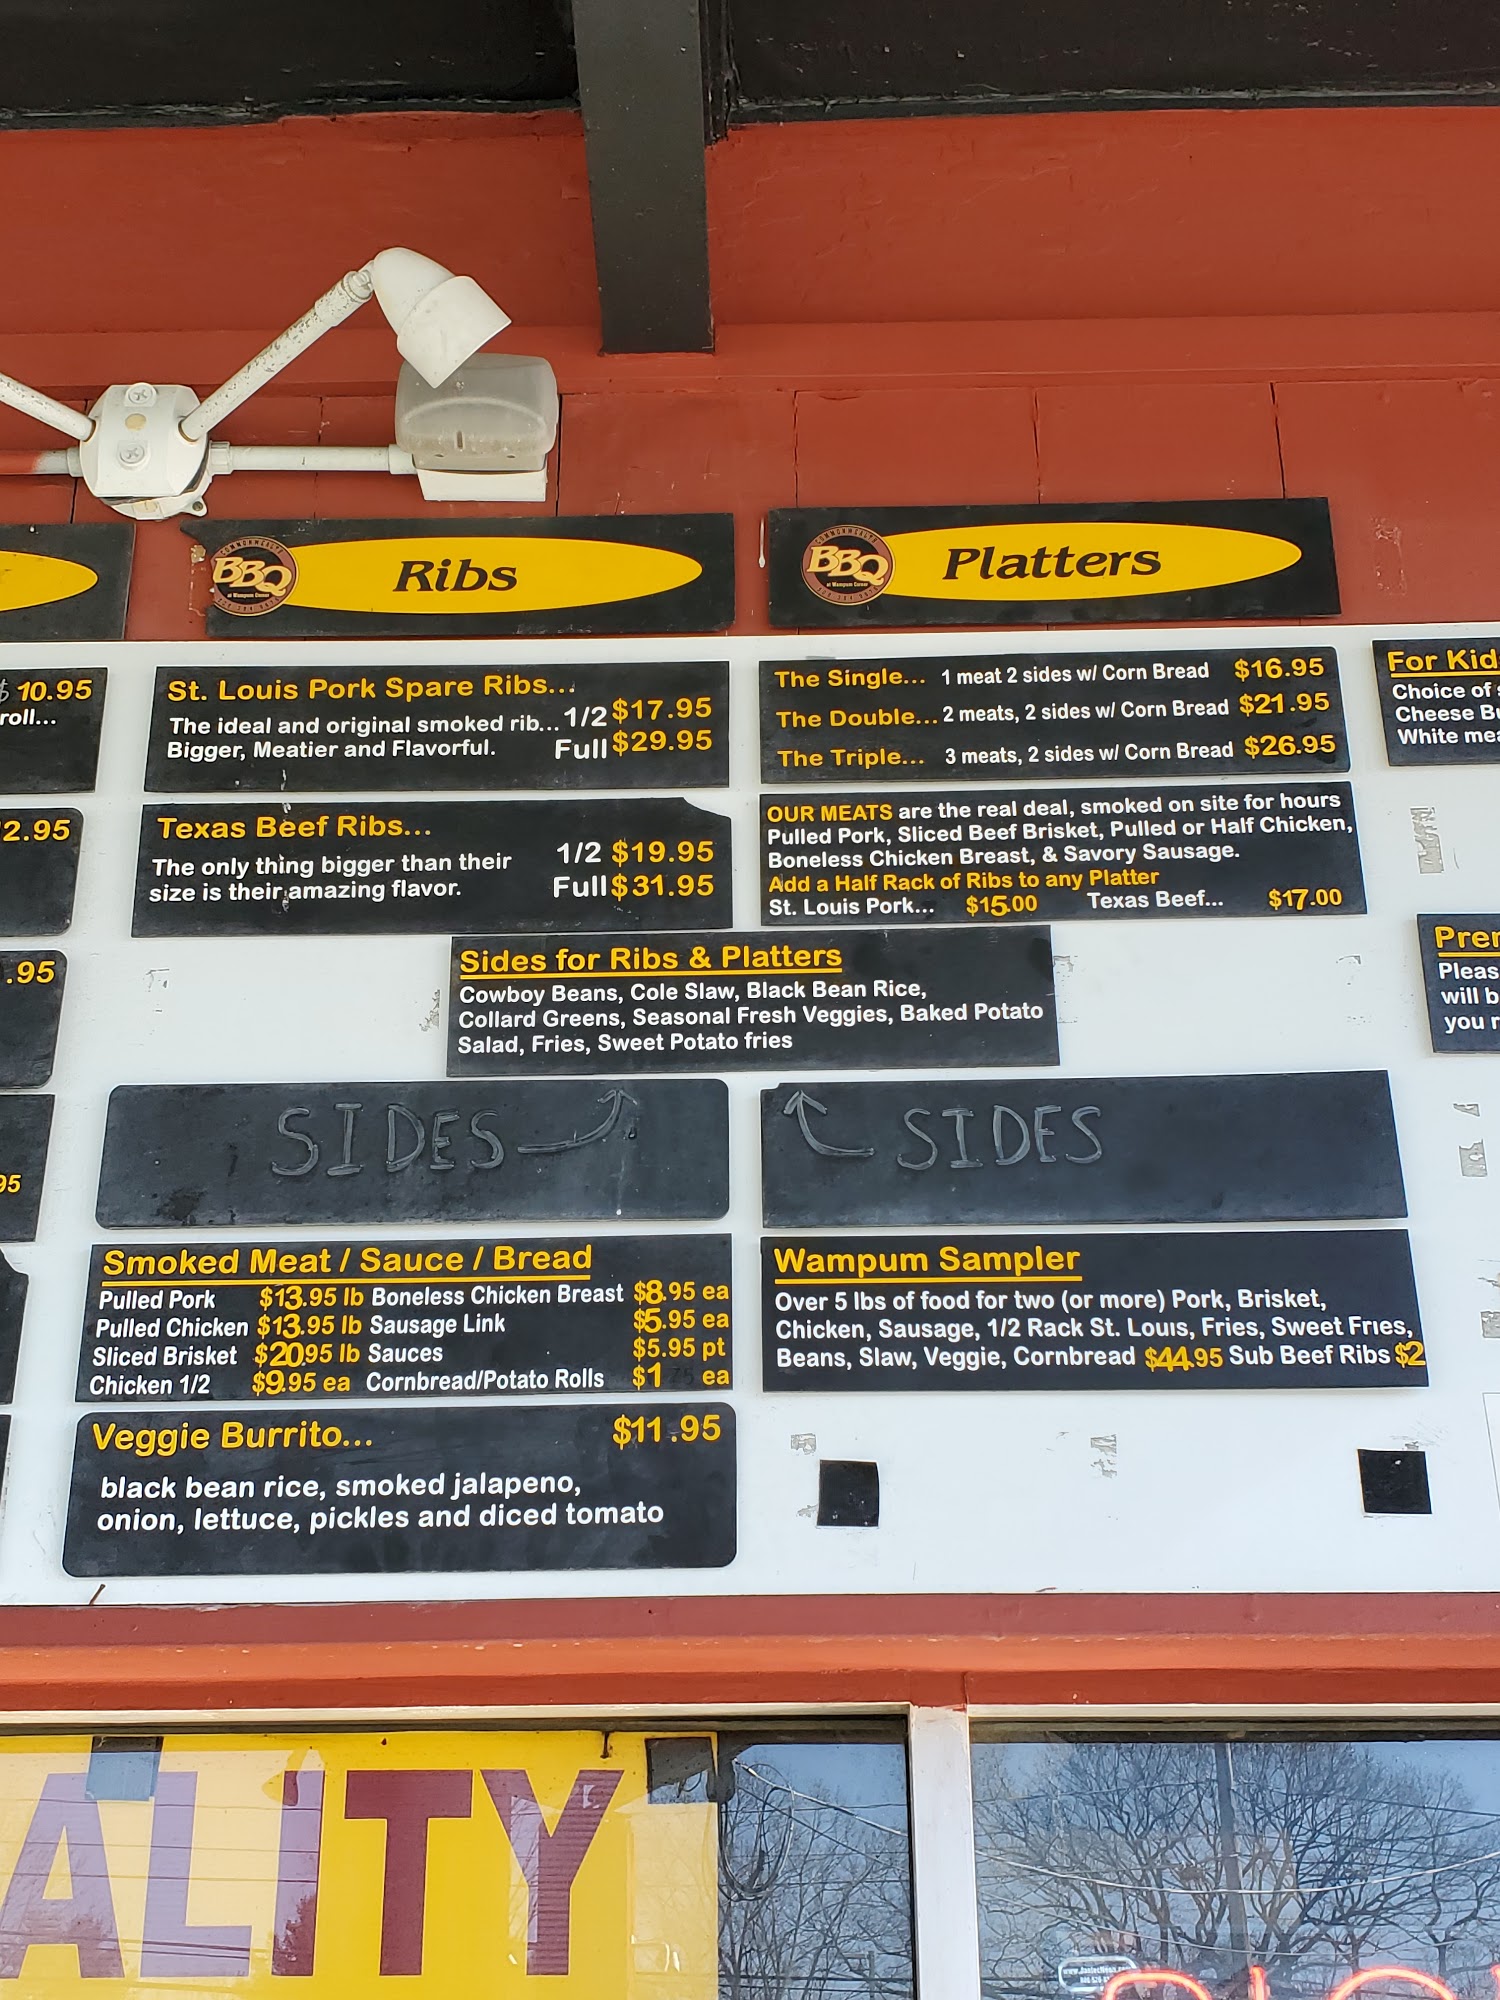 COMMONWEALTH
BBQ
at Wampum Corner
Ribs
COMMONWEALTH
BBQ
at Wampum Corner
Platters
$10.95
roll...
2.95
.95
95
St. Louis Pork Spare Ribs...
The ideal and original smoked rib... 1/2 $17.95
Bigger, Meatier and Flavorful. Full $29.95
Texas Beef Ribs...
The only thing bigger than their 1/2 $19.95
size is their amazing flavor. Full $31.95
The Single... 1 meat 2 sides w/ Corn Bread $16.95
The Double... 2 meats, 2 sides w/ Corn Bread $21.95
The Triple... 3 meats, 2 sides w/ Corn Bread $26.95
OUR MEATS are the real deal, smoked on site for hours
Pulled Pork, Sliced Beef Brisket, Pulled or Half Chicken,
Boneless Chicken Breast, & Savory Sausage.
Add a Half Rack of Ribs to any Platter
St. Louis Pork... $15.00 Texas Beef... $17.00
For Kid
Choice of
Cheese Bu
White mea
Prer
Pleas
will b
you r
Sides for Ribs & Platters
Cowboy Beans, Cole Slaw, Black Bean Rice,
Collard Greens, Seasonal Fresh Veggies, Baked Potato
Salad, Fries, Sweet Potato fries
SIDES
SIDES
Smoked Meat / Sauce / Bread
Pulled Pork $13.95 lb Boneless Chicken Breast $8.95 ea
Pulled Chicken $13.95 lb Sausage Link $5.95 ea
Sliced Brisket $20.95 lb Sauces $5.95 pt
Chicken 1/2 $9.95 ea Cornbread/Potato Rolls $1 75 ea
Wampum Sampler
Over 5 lbs of food for two (or more) Pork, Brisket,
Chicken, Sausage, 1/2 Rack St. Louis, Fries, Sweet Fries,
Beans, Slaw, Veggie, Cornbread $44.95 Sub Beef Ribs $2
Veggie Burrito... $11.95
black bean rice, smoked jalapeno,
onion, lettuce, pickles and diced tomato
ALITY